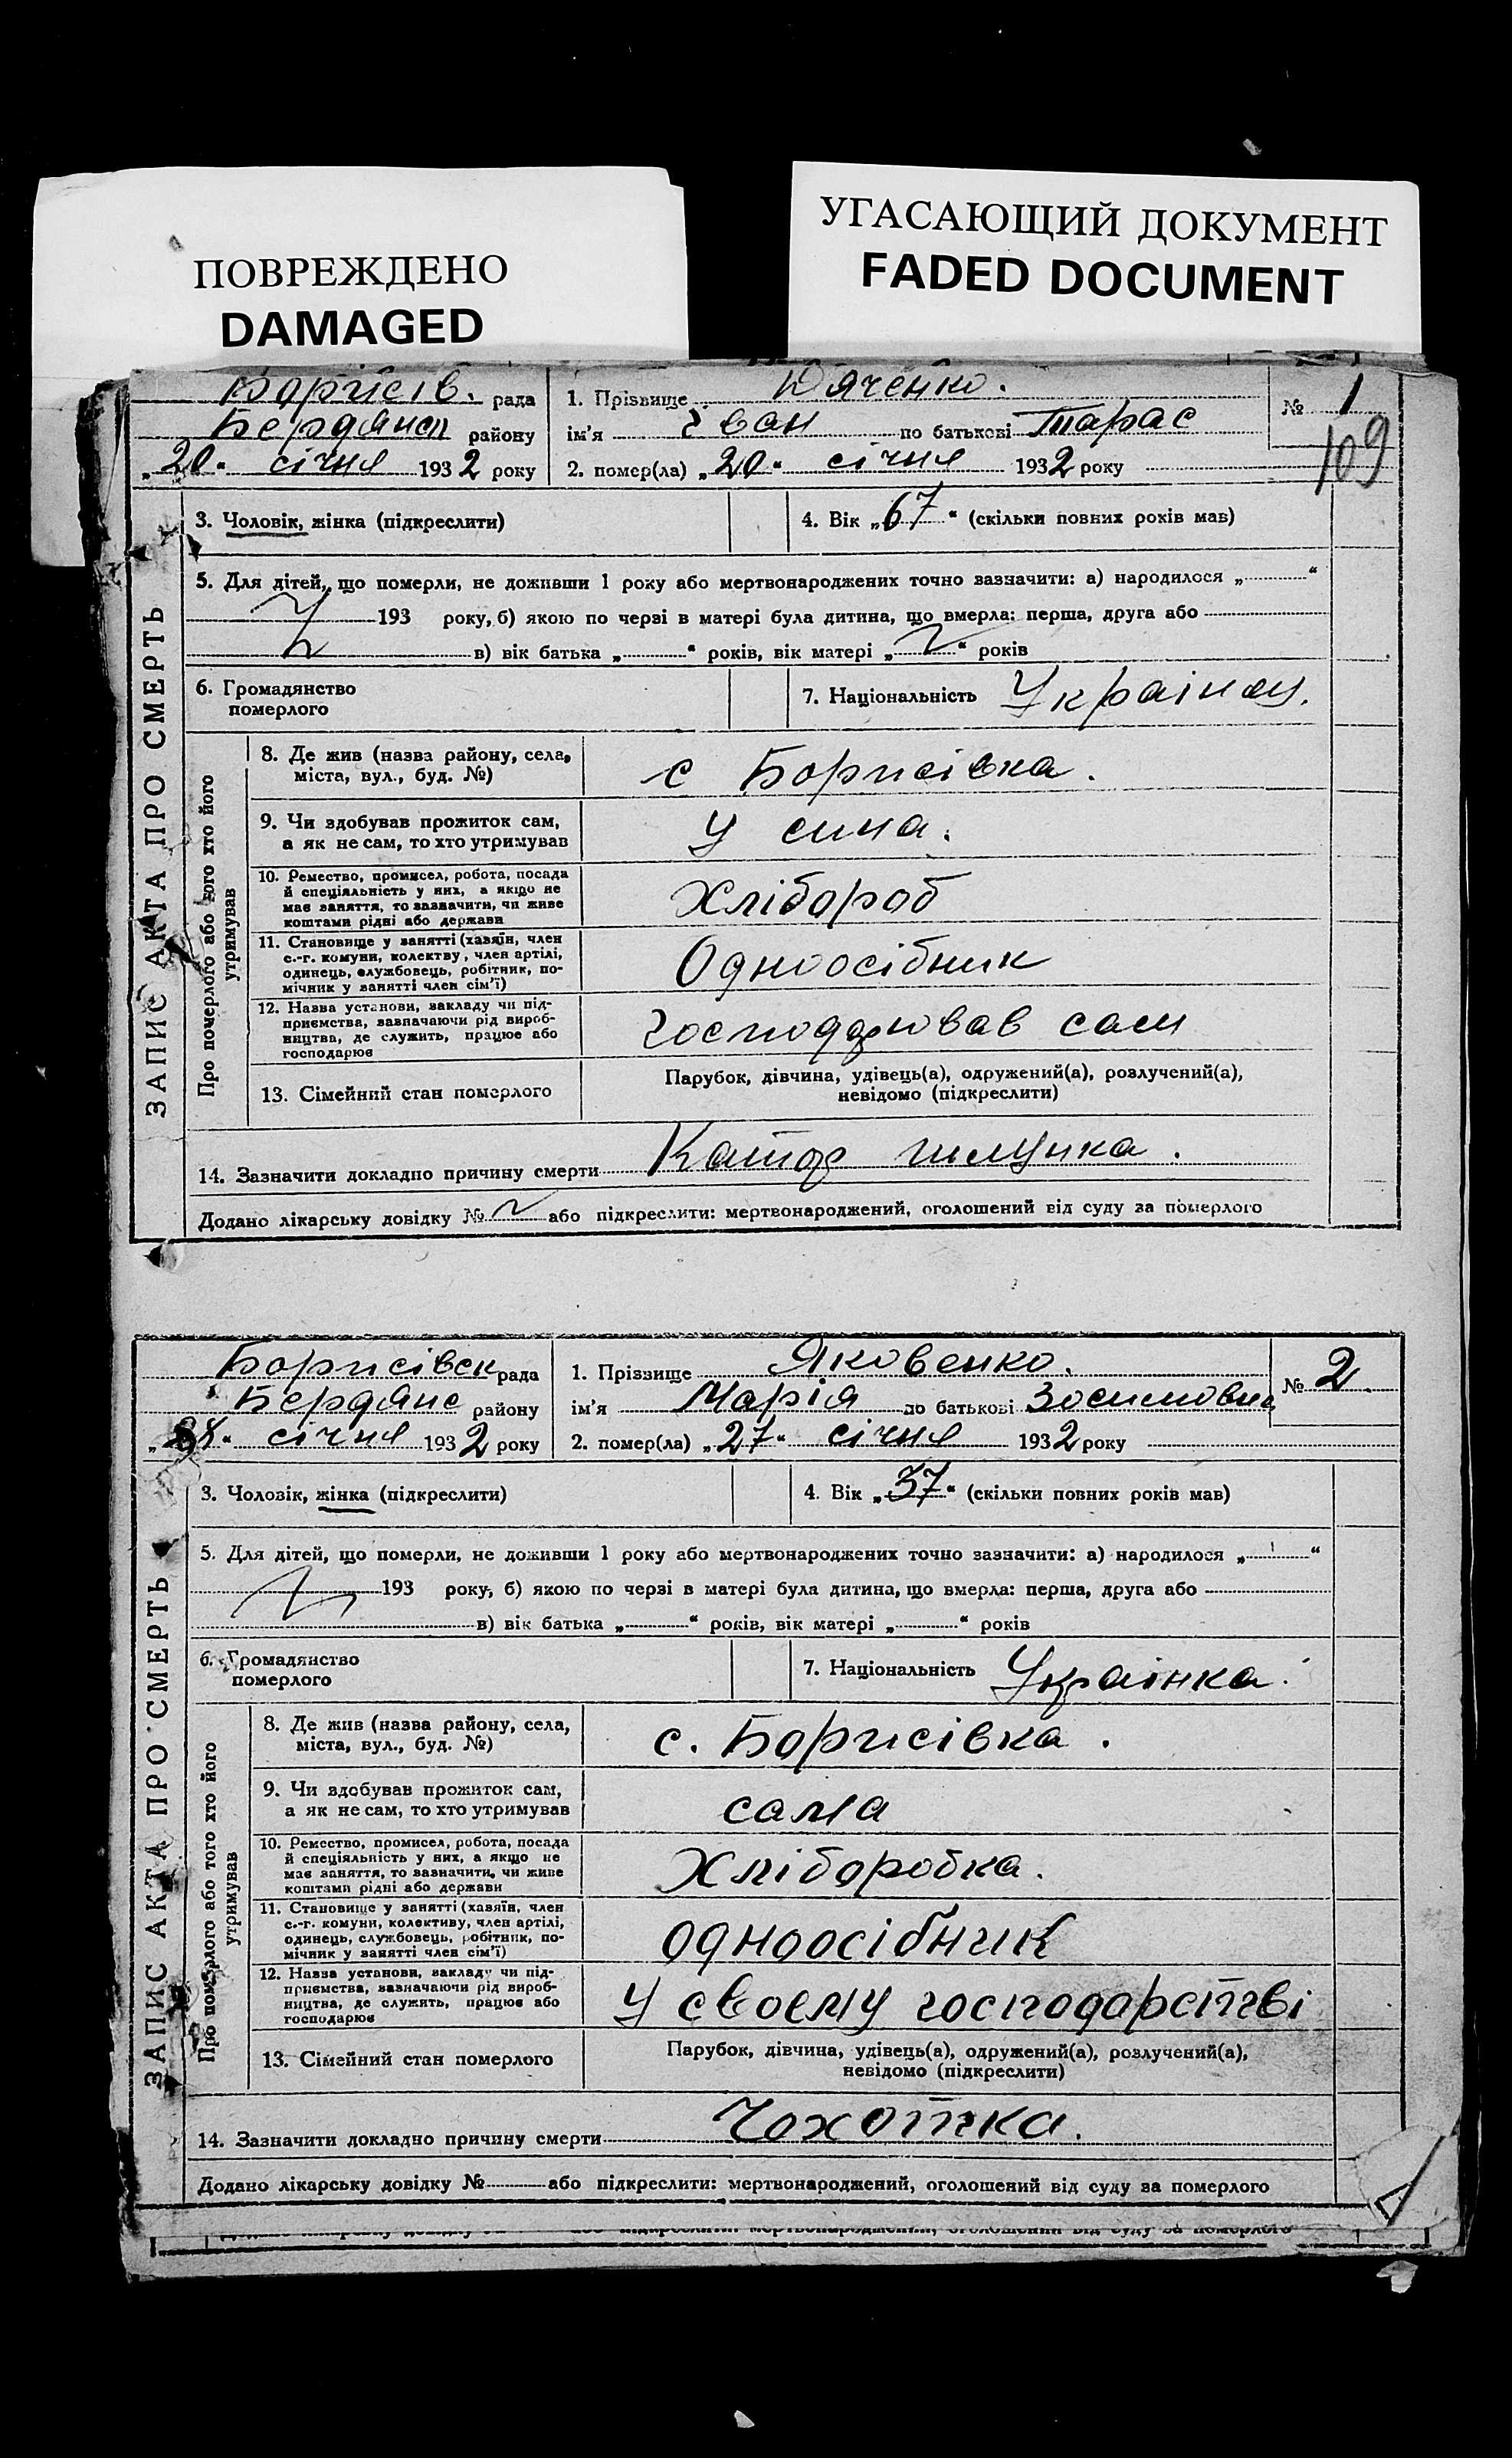 ПОВРЕЖДЕНО
DAMAGED
УГАСАЮЩИЙ ДОКУМЕНТ
FADED DOCUMENT
Борисів. рада
Бердянсп району
„20“ січня 1932 року
1. Прізвище Дяченко.
ім'я Іван по батькові Тарас
2. помер(ла) „20“ січня 1932 року
№ 1
109
ЗАПИС АКТА ПРО СМЕРТЬ
3. Чоловік, жінка (підкреслити)
4. Вік „67“ (скільки повних років мав)
5. Для дітей, що померли, не доживши 1 року або мертвонароджених точно зазначити: а) народилося „ “
193 року, б) якою по черзі в матері була дитина, що вмерла: перша, друга або
в) вік батька „ “ років, вік матері „ “ років
6. Громадянство
померлого
7. Національність Українец.
Про померлого або того хто його
утримував
8. Де жив (назва району, села,
міста, вул., буд. №)
с Борисівка.
9. Чи здобував прожиток сам,
а як не сам, то хто утримував
У сина.
10. Ремество, промисел, робота, посада
й спеціяльність у них, а якщо не
має заняття, то зазначити, чи живе
коштами рідні або держави
Хлібороб
11. Становище у занятті (хазяїн, член
с.-г. комуни, колектву, член артілі,
одинець, службовець, робітник, по-
мічник у занятті член сім'ї)
Одноосібник
12. Назва установи, закладу чи під-
приємства, зазначаючи рід вироб-
ництва, де служить, працює або
господарює
господарював сам
13. Сімейний стан померлого
Парубок, дівчина, удівець(а), одружений(а), розлучений(а),
невідомо (підкреслити)
14. Зазначити докладно причину смерти Катар шлунка.
Додано лікарську довідку № або підкреслити: мертвонароджений, оголошений від суду за померлого
Борисівск рада
Бердянс району
„28“ січня 1932 року
1. Прізвище Яковенко.
ім'я Марія по батькові Зосимовна
2. помер(ла) „27“ січня 1932 року
№ 2.
ЗАПИС АКТА ПРО СМЕРТЬ
3. Чоловік, жінка (підкреслити)
4. Вік „37“ (скільки повних років мав)
5. Для дітей, що померли, не доживши 1 року або мертвонароджених точно зазначити: а) народилося „ “
193 року, б) якою по черзі в матері була дитина, що вмерла: перша, друга або
в) вік батька „ “ років, вік матері „ “ років
6. Громадянство
померлого
7. Національність Українка.
Про померлого або того хто його
утримував
8. Де жив (назва району, села,
міста, вул., буд. №)
с. Борисівка.
9. Чи здобував прожиток сам,
а як не сам, то хто утримував
сама
10. Ремество, промисел, робота, посада
й спеціяльність у них, а якщо не
має заняття, то зазначити, чи живе
коштами рідні або держави
Хліборобка.
11. Становище у занятті (хазяїн, член
с.-г. комуни, колективу, член артілі,
одинець, службовець, робітник, по-
мічник у занятті член сім'ї)
одноосібник
12. Назва установи, закладу чи під-
приємства, зазначаючи рід вироб-
ництва, де служить, працює або
господарює
У своєму господарстві
13. Сімейний стан померлого
Парубок, дівчина, удівець(а), одружений(а), розлучений(а),
невідомо (підкреслити)
14. Зазначити докладно причину смерти Чохотка.
Додано лікарську довідку № або підкреслити: мертвонароджений, оголошений від суду за померлого